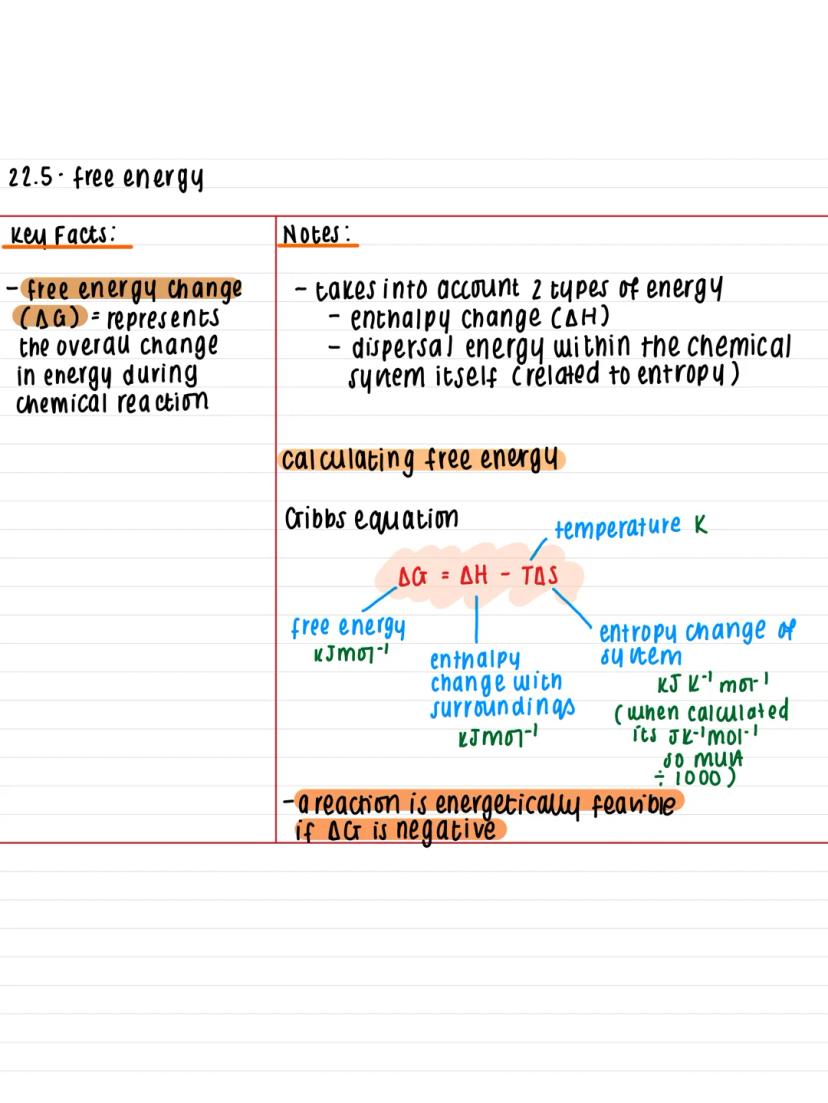 22.5. free energy
Key Facts:
- free energy change
(ΔG) = represents
the overall change
in energy during
chemical reaction
Notes:
- takes into account 2 types of energy
- enthalpy change (ΔH)
- dispersal energy within the chemical
system itself (related to entropy)
calculating free energy
Gibbs equation
temperature K
ΔG = ΔH - TΔS
free energy
kJmol⁻¹
enthalpy
change with
surroundings
kJmol⁻¹
entropy change of
system
kJ K⁻¹ mol⁻¹
(when calculated
its JK⁻¹mol⁻¹
so must
÷ 1000)
- a reaction is energetically feasible
if ΔG is negative